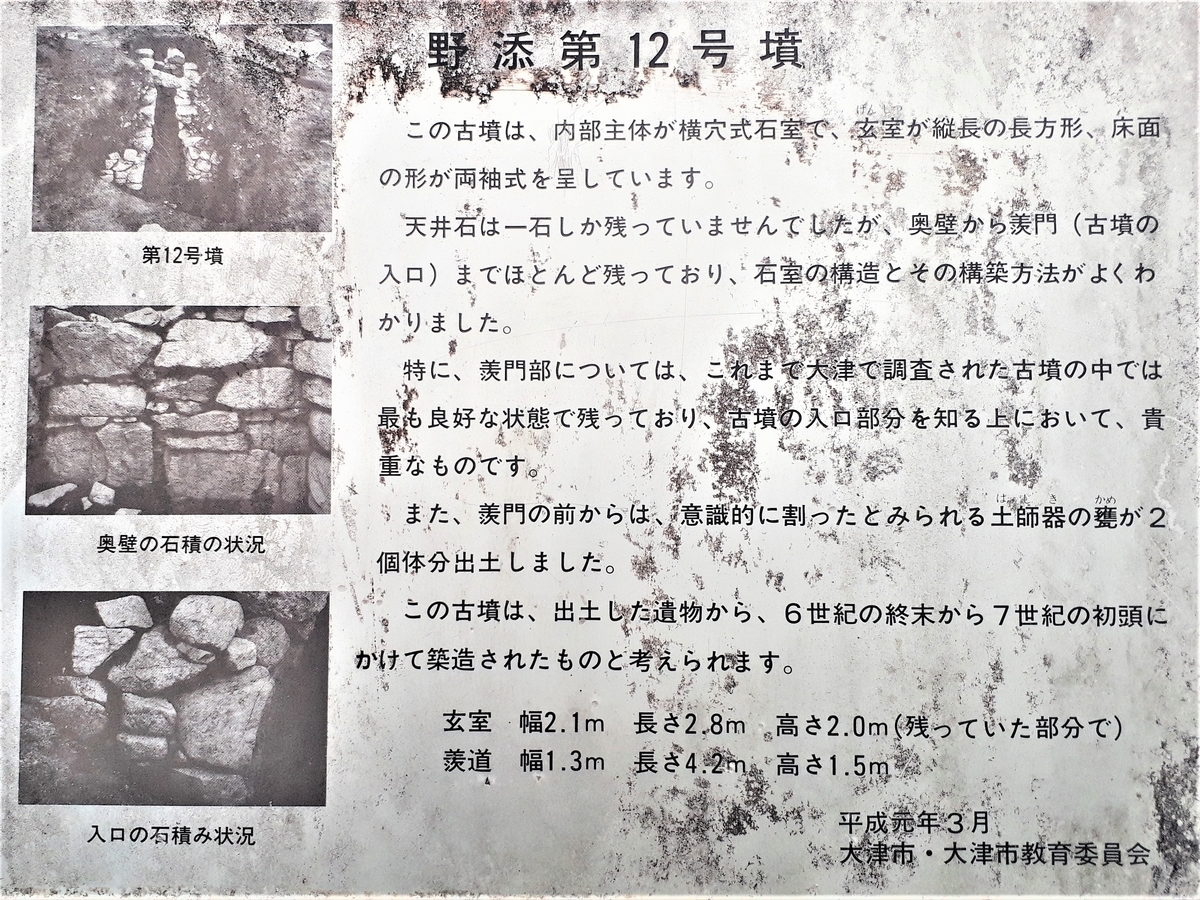 野添第12号墳
げんしつ
この古墳は、内部主体が横穴式石室で、玄室が縦長の長方形、床面
の形が両袖式を呈しています。
天井石は一石しか残っていませんでしたが、奥壁から羨門（古墳の
入口）までほとんど残っており、石室の構造とその構築方法がよくわ
かりました。
特に、羨門部については、これまで大津で調査された古墳の中では
最も良好な状態で残っており、古墳の入口部分を知る上において、貴
重なものです。
はじき かめ
また、羨門の前からは、意識的に割ったとみられる土師器の甕が２
個体分出土しました。
この古墳は、出土した遺物から、６世紀の終末から７世紀の初頭に
かけて築造されたものと考えられます。
玄室 幅2.1m 長さ2.8m 高さ2.0m(残っていた部分で)
羨道 幅1.3m 長さ4.2m 高さ1.5m
平成元年３月
大津市・大津市教育委員会
第12号墳
奥壁の石積の状況
入口の石積み状況